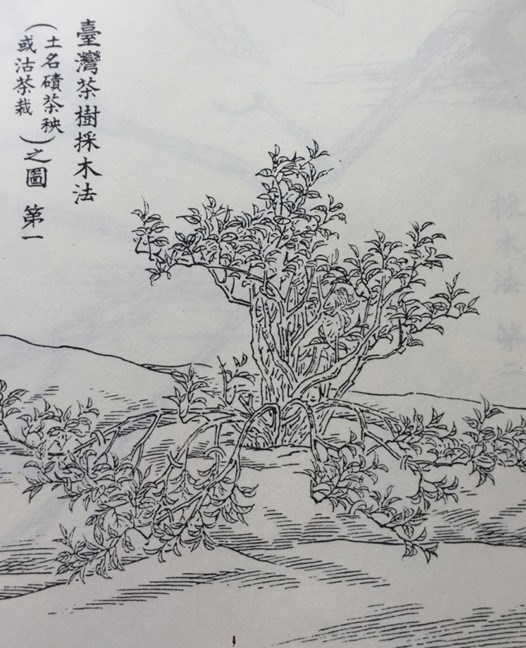 臺灣茶樹採木法
（土名磧茶秧
（或沽茶栽
）之圖 第一
採木法 第二